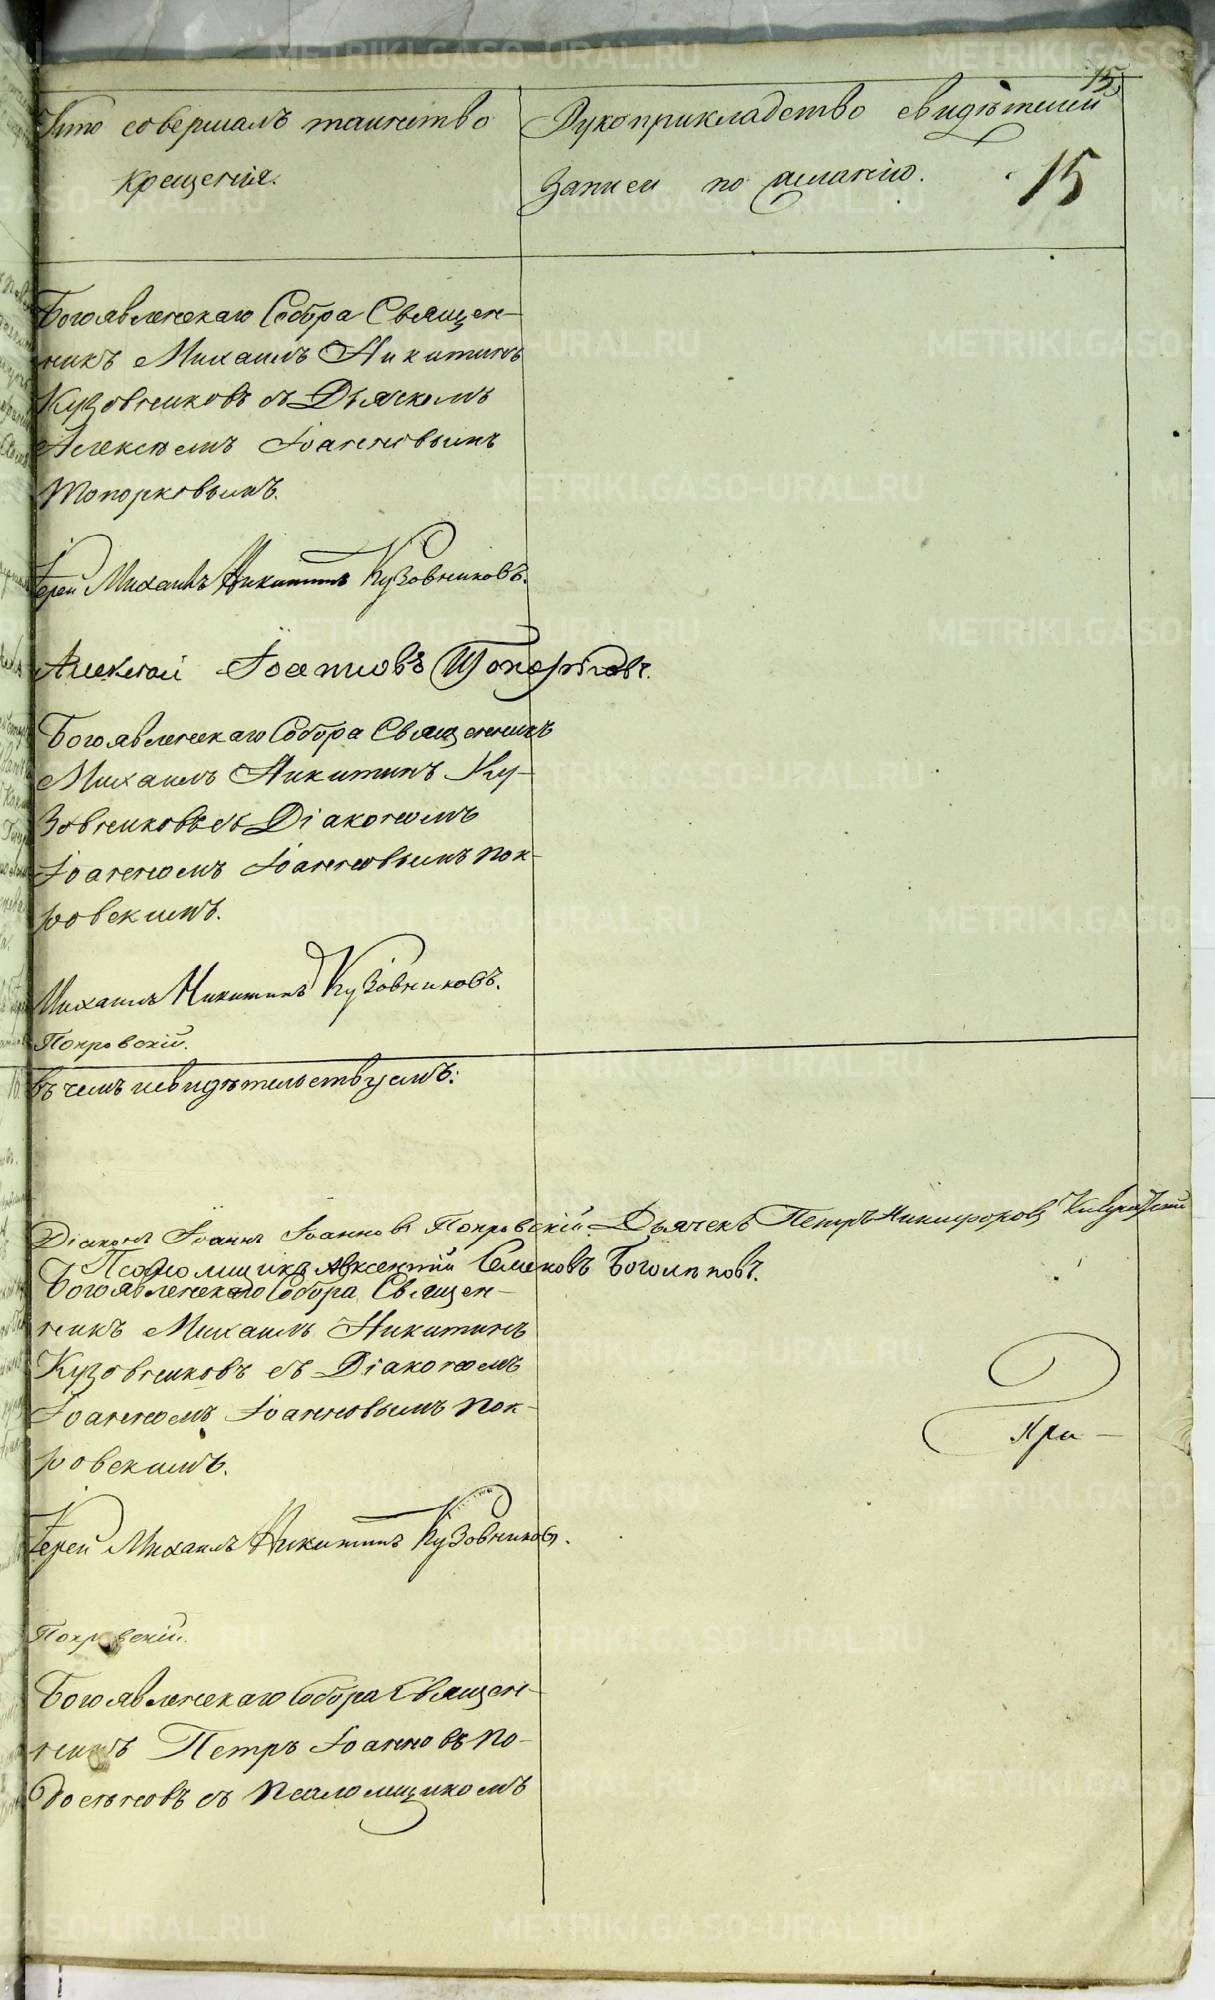 15
Кто совершалъ таинство
крещенія.
Рукоприкладство свидѣтелей
записи по желанію.
15
Богоявленскаго Собора Священ-
никъ Михаилъ Никитинъ
Кузовниковъ съ Дьячкомъ
Алексѣемъ Іоанновымъ
Топорковымъ.
Іерей Михаилъ Никитинъ Кузовниковъ.
Алексѣй Іоанновъ Топорковъ.
Богоявленскаго Собора Священникъ
Михаилъ Никитинъ Ку-
зовниковъ съ Діакономъ
Іоанномъ Іоанновымъ Пок-
ровскимъ.
Михаилъ Никитинъ Кузовниковъ.
Покровскій.
въ чемъ и свидѣтельствуемъ:
Діаконъ Іоаннъ Іоанновъ Покровскій. Дьячекъ Петръ Никифоровъ
Псаломщикъ Авксентій Семеновъ Боголѣповъ.
Богоявленскаго Собора Священ-
никъ Михаилъ Никитинъ
Кузовниковъ съ Діакономъ
Іоанномъ Іоанновымъ Пок-
ровскимъ.
При-
Іерей Михаилъ Никитинъ Кузовниковъ.
Покровскій.
Богоявленскаго Собора Священ-
никъ Петръ Іоанновъ По-
досѣновъ съ Псаломщикомъ
METRIKI.GASO-URAL.RU